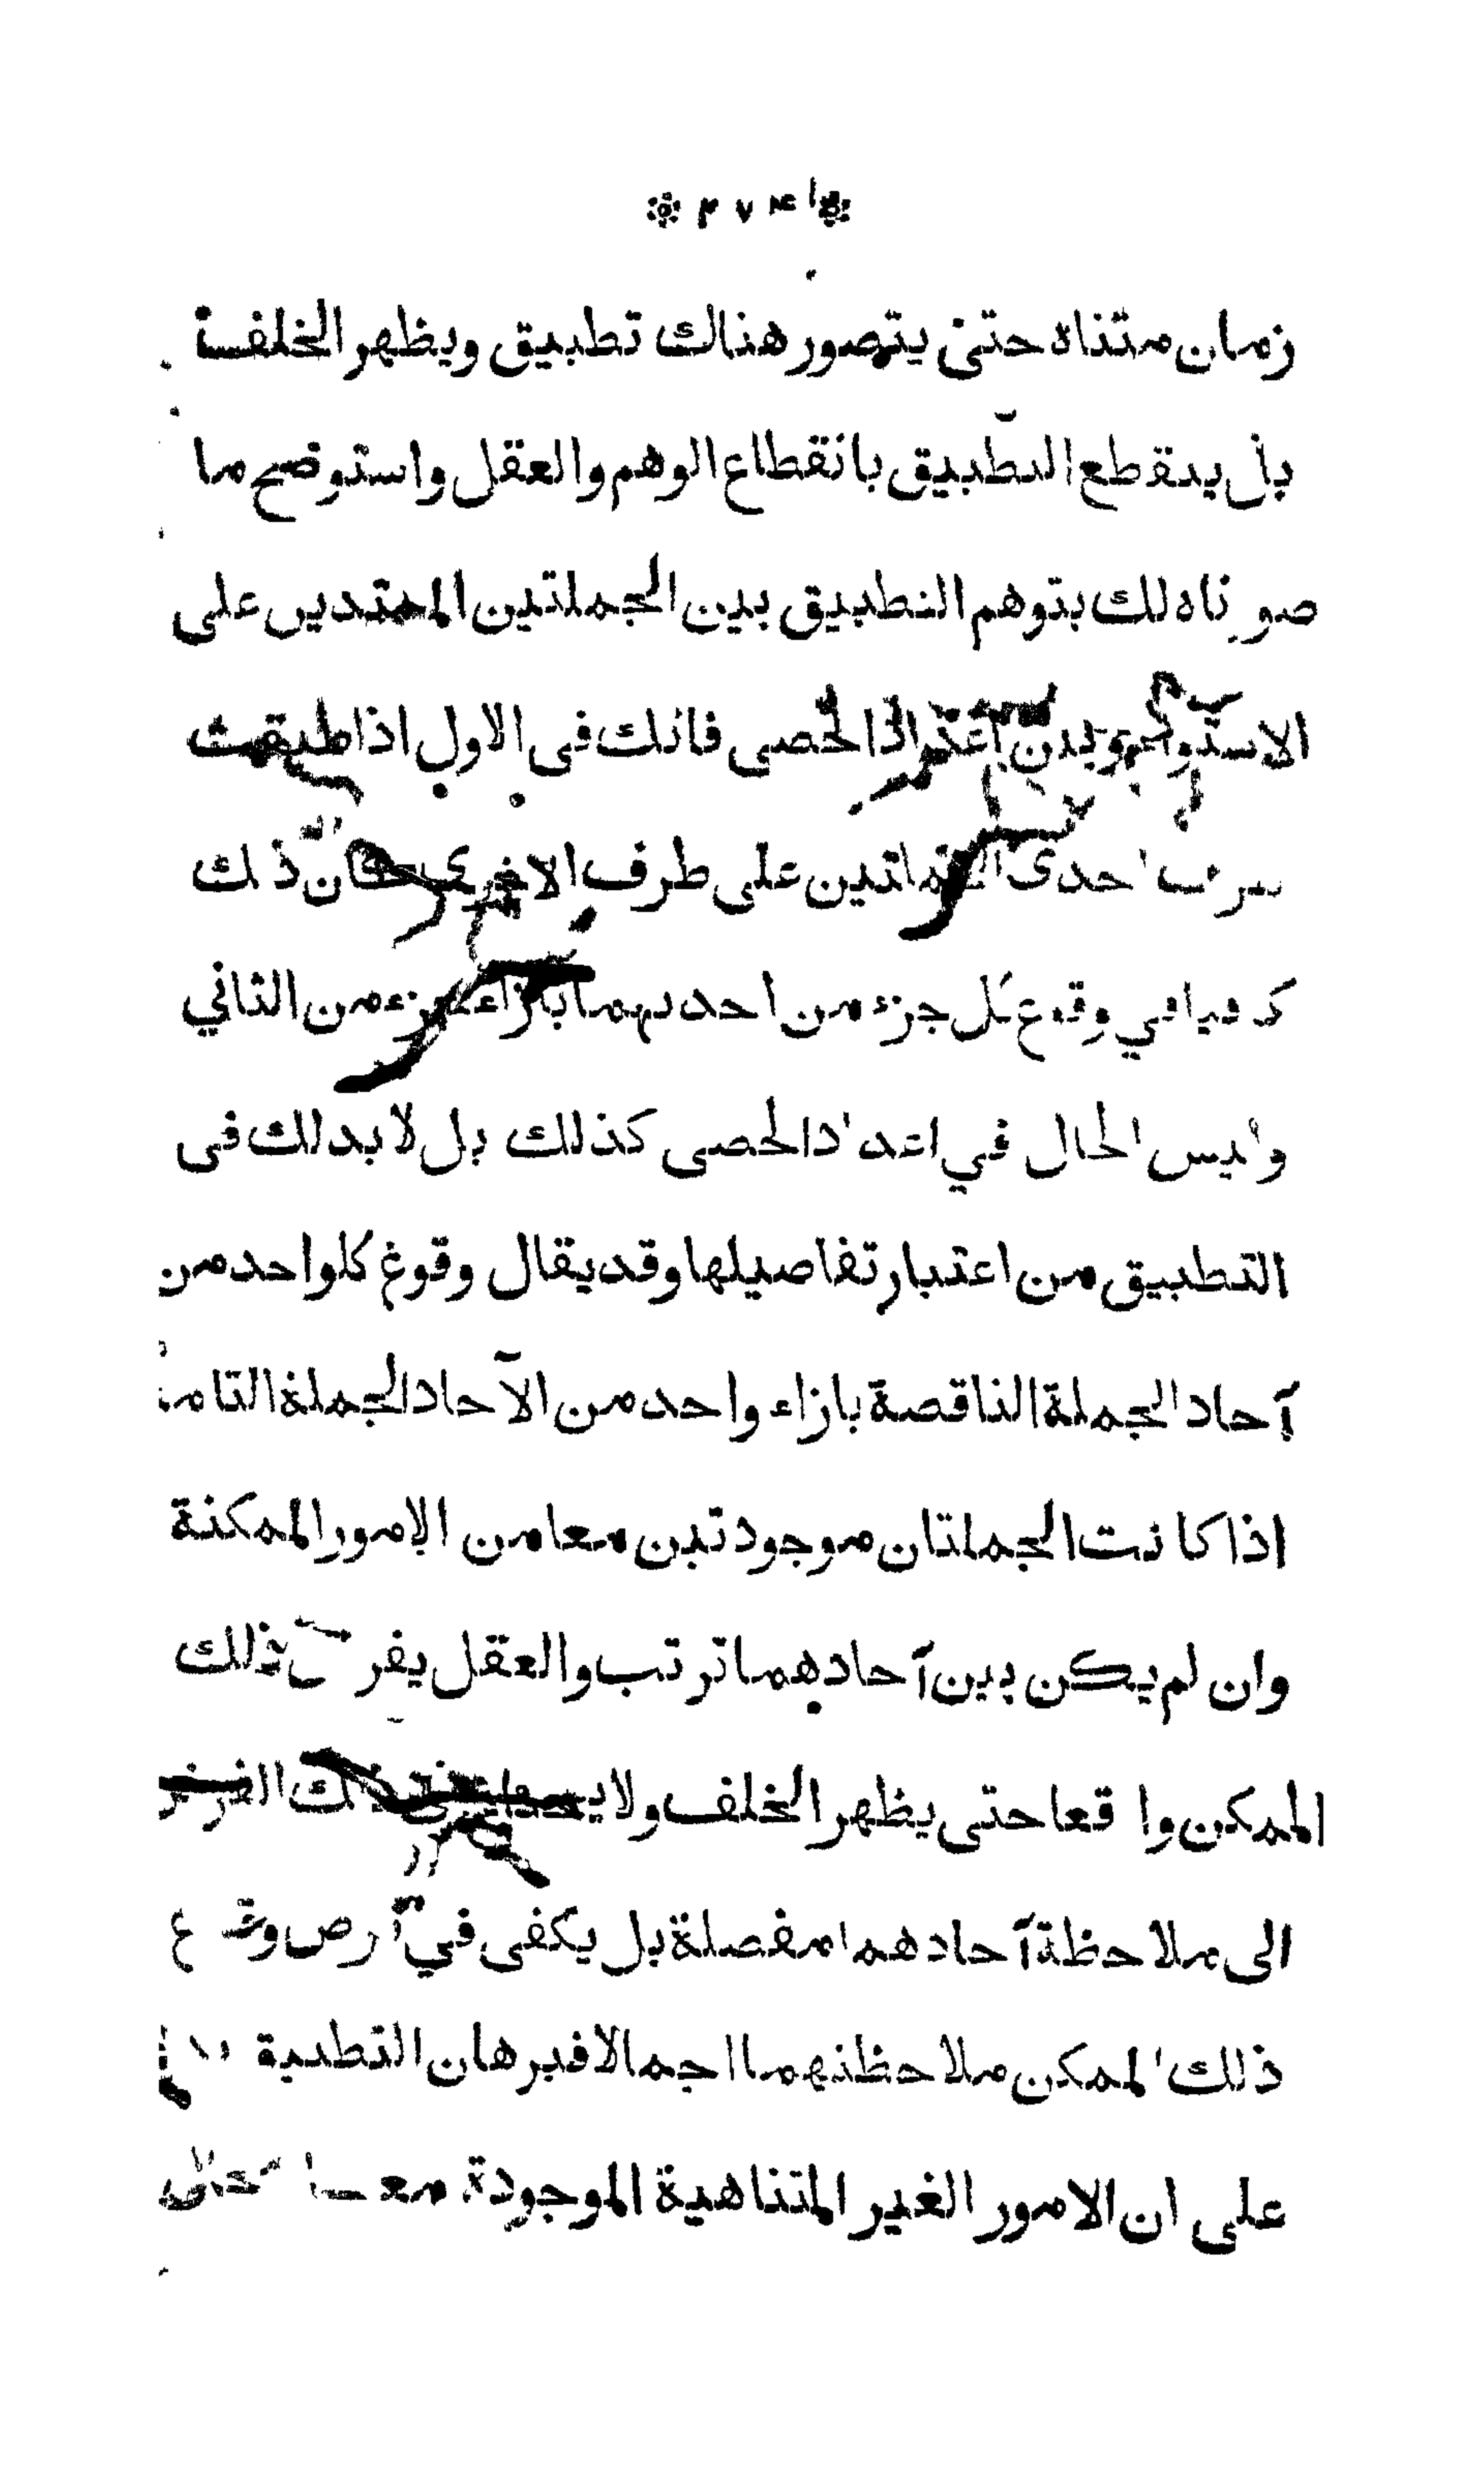 زمان متناه حتى يتصور هناك تطبيق ويظهر الخلف
بل ينقطع التطبيق بانقطاع الوهم والعقل واستوضح ما
صورناه لك بتوهم التطبيق بين الجملتين الممتدين على
الاستواء وبين اعداد الحصى فانك فى الاول اذا طبقت
طرف احدى الجملتين على طرف الاخرى كان ذلك
كافيا في وقوع كل جزء من احديهما بازاء جزء من الثاني
وليس الحال في اعداد الحصى كذلك بل لا بد لك فى
التطبيق من اعتبار تفاصيلها وقد يقال وقوع كلواحد من
آحاد الجملة الناقصة بازاء واحد من الآحاد الجملة التامة
اذا كانت الجملتان موجودتين معا من الامور الممكنة
وان لم يكن بين آحادهما ترتب والعقل يفرض ذلك
الممكن واقعا حتى يظهر الخلف ولا ذلك الفرض
الى ملاحظة آحادهما مفصلة بل يكفى في فرض وقوع
ذلك الممكن ملاحظتهما اجمالا فبرهان التطبيق
على ان الامور الغير المتناهية الموجودة معا